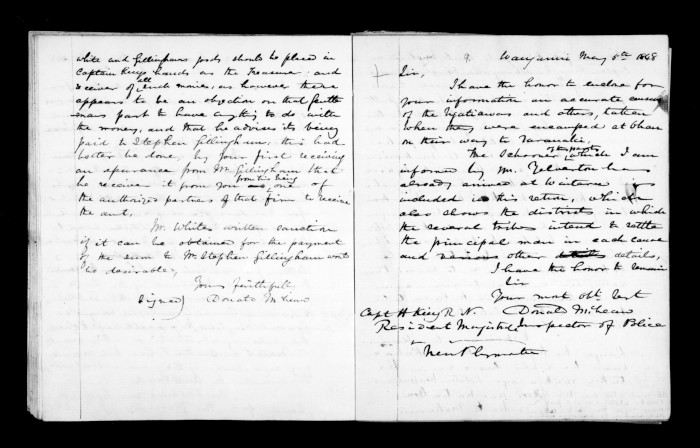 White and Gillinghams goods should be placed in
Captain Kings hands as the Treasurer and
receiver of all such monies, as however there
appears to be an objection on that gentle
mans part to have anything to do with
the money, and that he advises its being
paid to Stephen Gillingham, this had
better be done, by your first receiving
an assurance from Mr Gillingham that
he receives it from you from his being one of
the authorized partners of that firm to receive
the amt.
Mr. Whites written sanction
if it can be obtained for the payment
of the sum to Mr Stephen Gillingham wont
be desirable,
Yours faithfully
Signed) Donald McLean
9. May 5th 1848
Sir,
I have the honor to enclose for
your information an accurate census
of the Ngatiawas and others, taken
when they were encamped at
on their way to Taranaki.
The Schooner of the party which I am
informed by Mr. Yelverton has
already arrived at Waitara is
included in this return, which
also shows the districts in which
the several tribes intend to settle
the principal man in each canoe
and various other details,
I have the honor to remain
Sir
Your most obt. Svt
Capt H King R. N. Donald McLean
Resident Magistrate Inspector of Police
New Plymouth